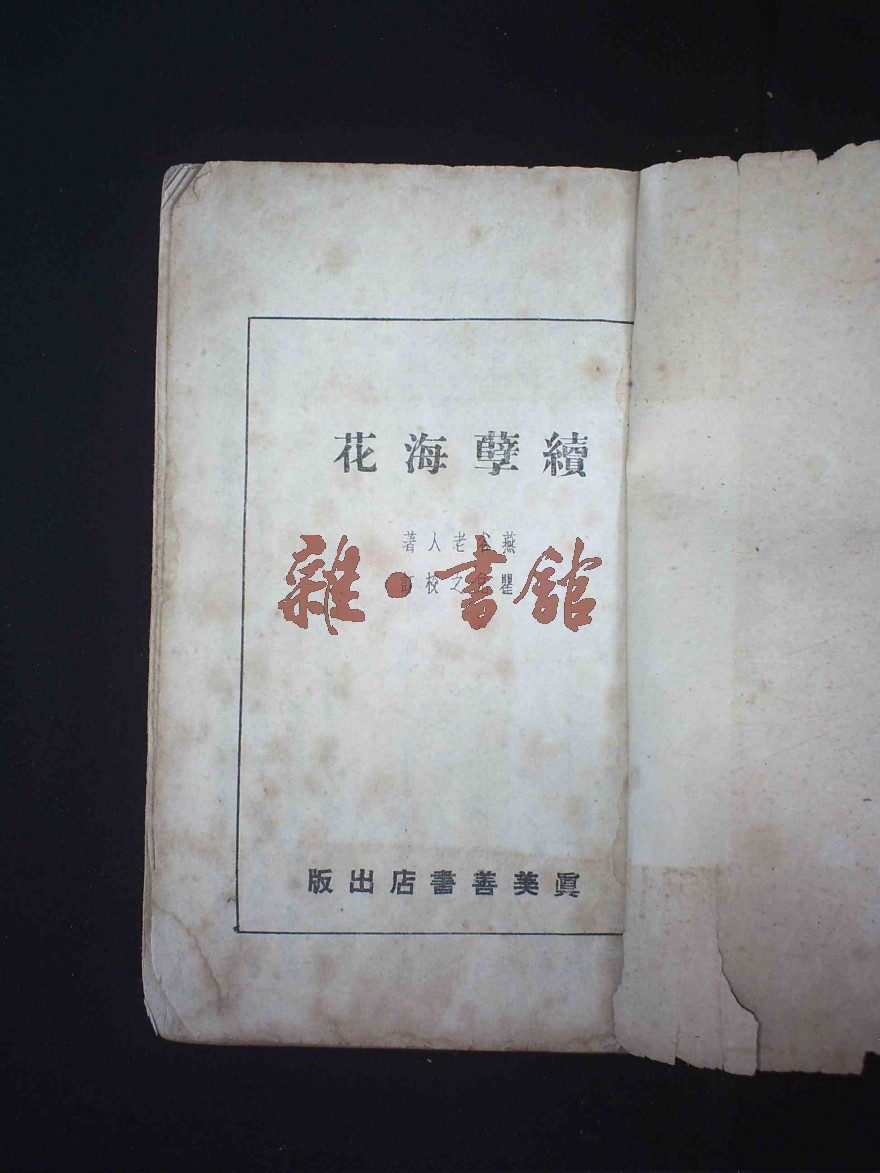 續孽海花
燕谷老人著
瞿兌之校訂
雜·書館
眞美善書店出版